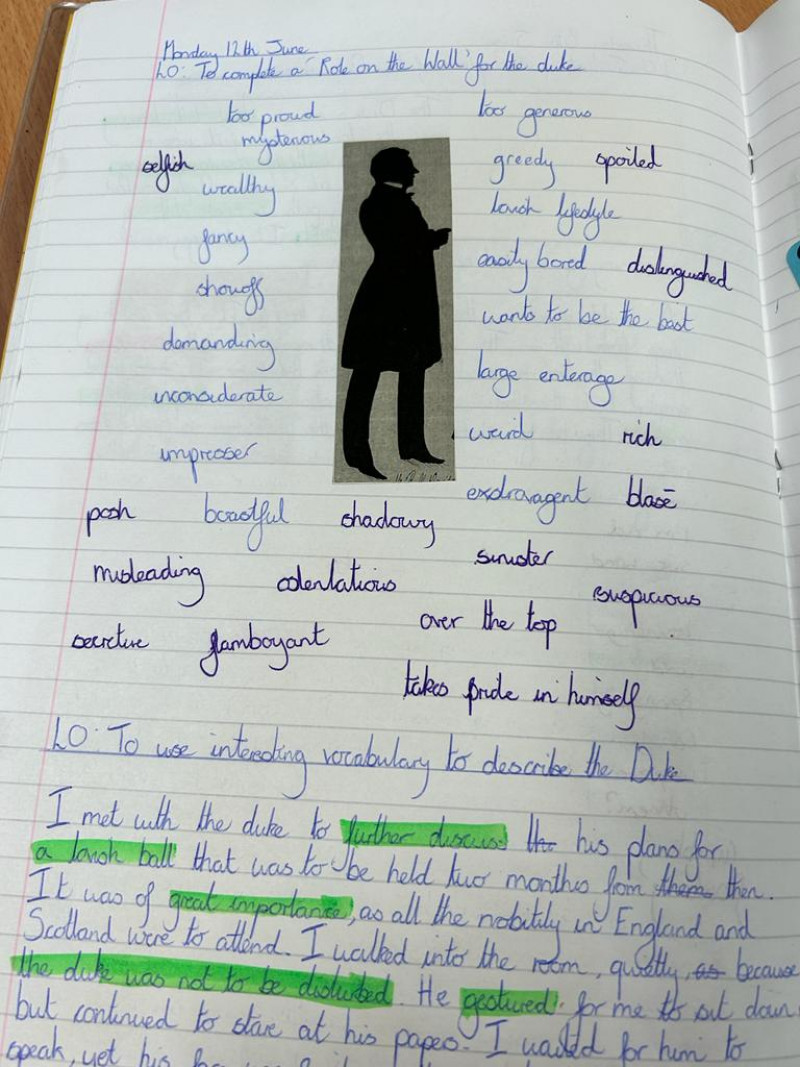 Monday 12th June
LO: To complete a 'Role on the Wall' for the duke
too proud too generous
mysterious
selfish greedy spoiled
wealthy lavish lifestyle
fancy easily bored distinguished
showoff wants to be the best
demanding large enterage
inconsiderate weird rich
impresser extravagent blasé
posh boastful shadowy
misleading ostentatious sinister suspicious
secretive flamboyant over the top
takes pride in himself
LO: To use interesting vocabulary to describe the Duke
I met with the duke to further discuss his plans for
a lavish ball that was to be held two months from then.
It was of great importance, as all the nobitily in England and
Scotland were to attend. I walked into the room, quietly, because
the duke was not to be disturbed. He gestured for me to sit down
but continued to stare at his papes. I waited for him to
speak, yet his